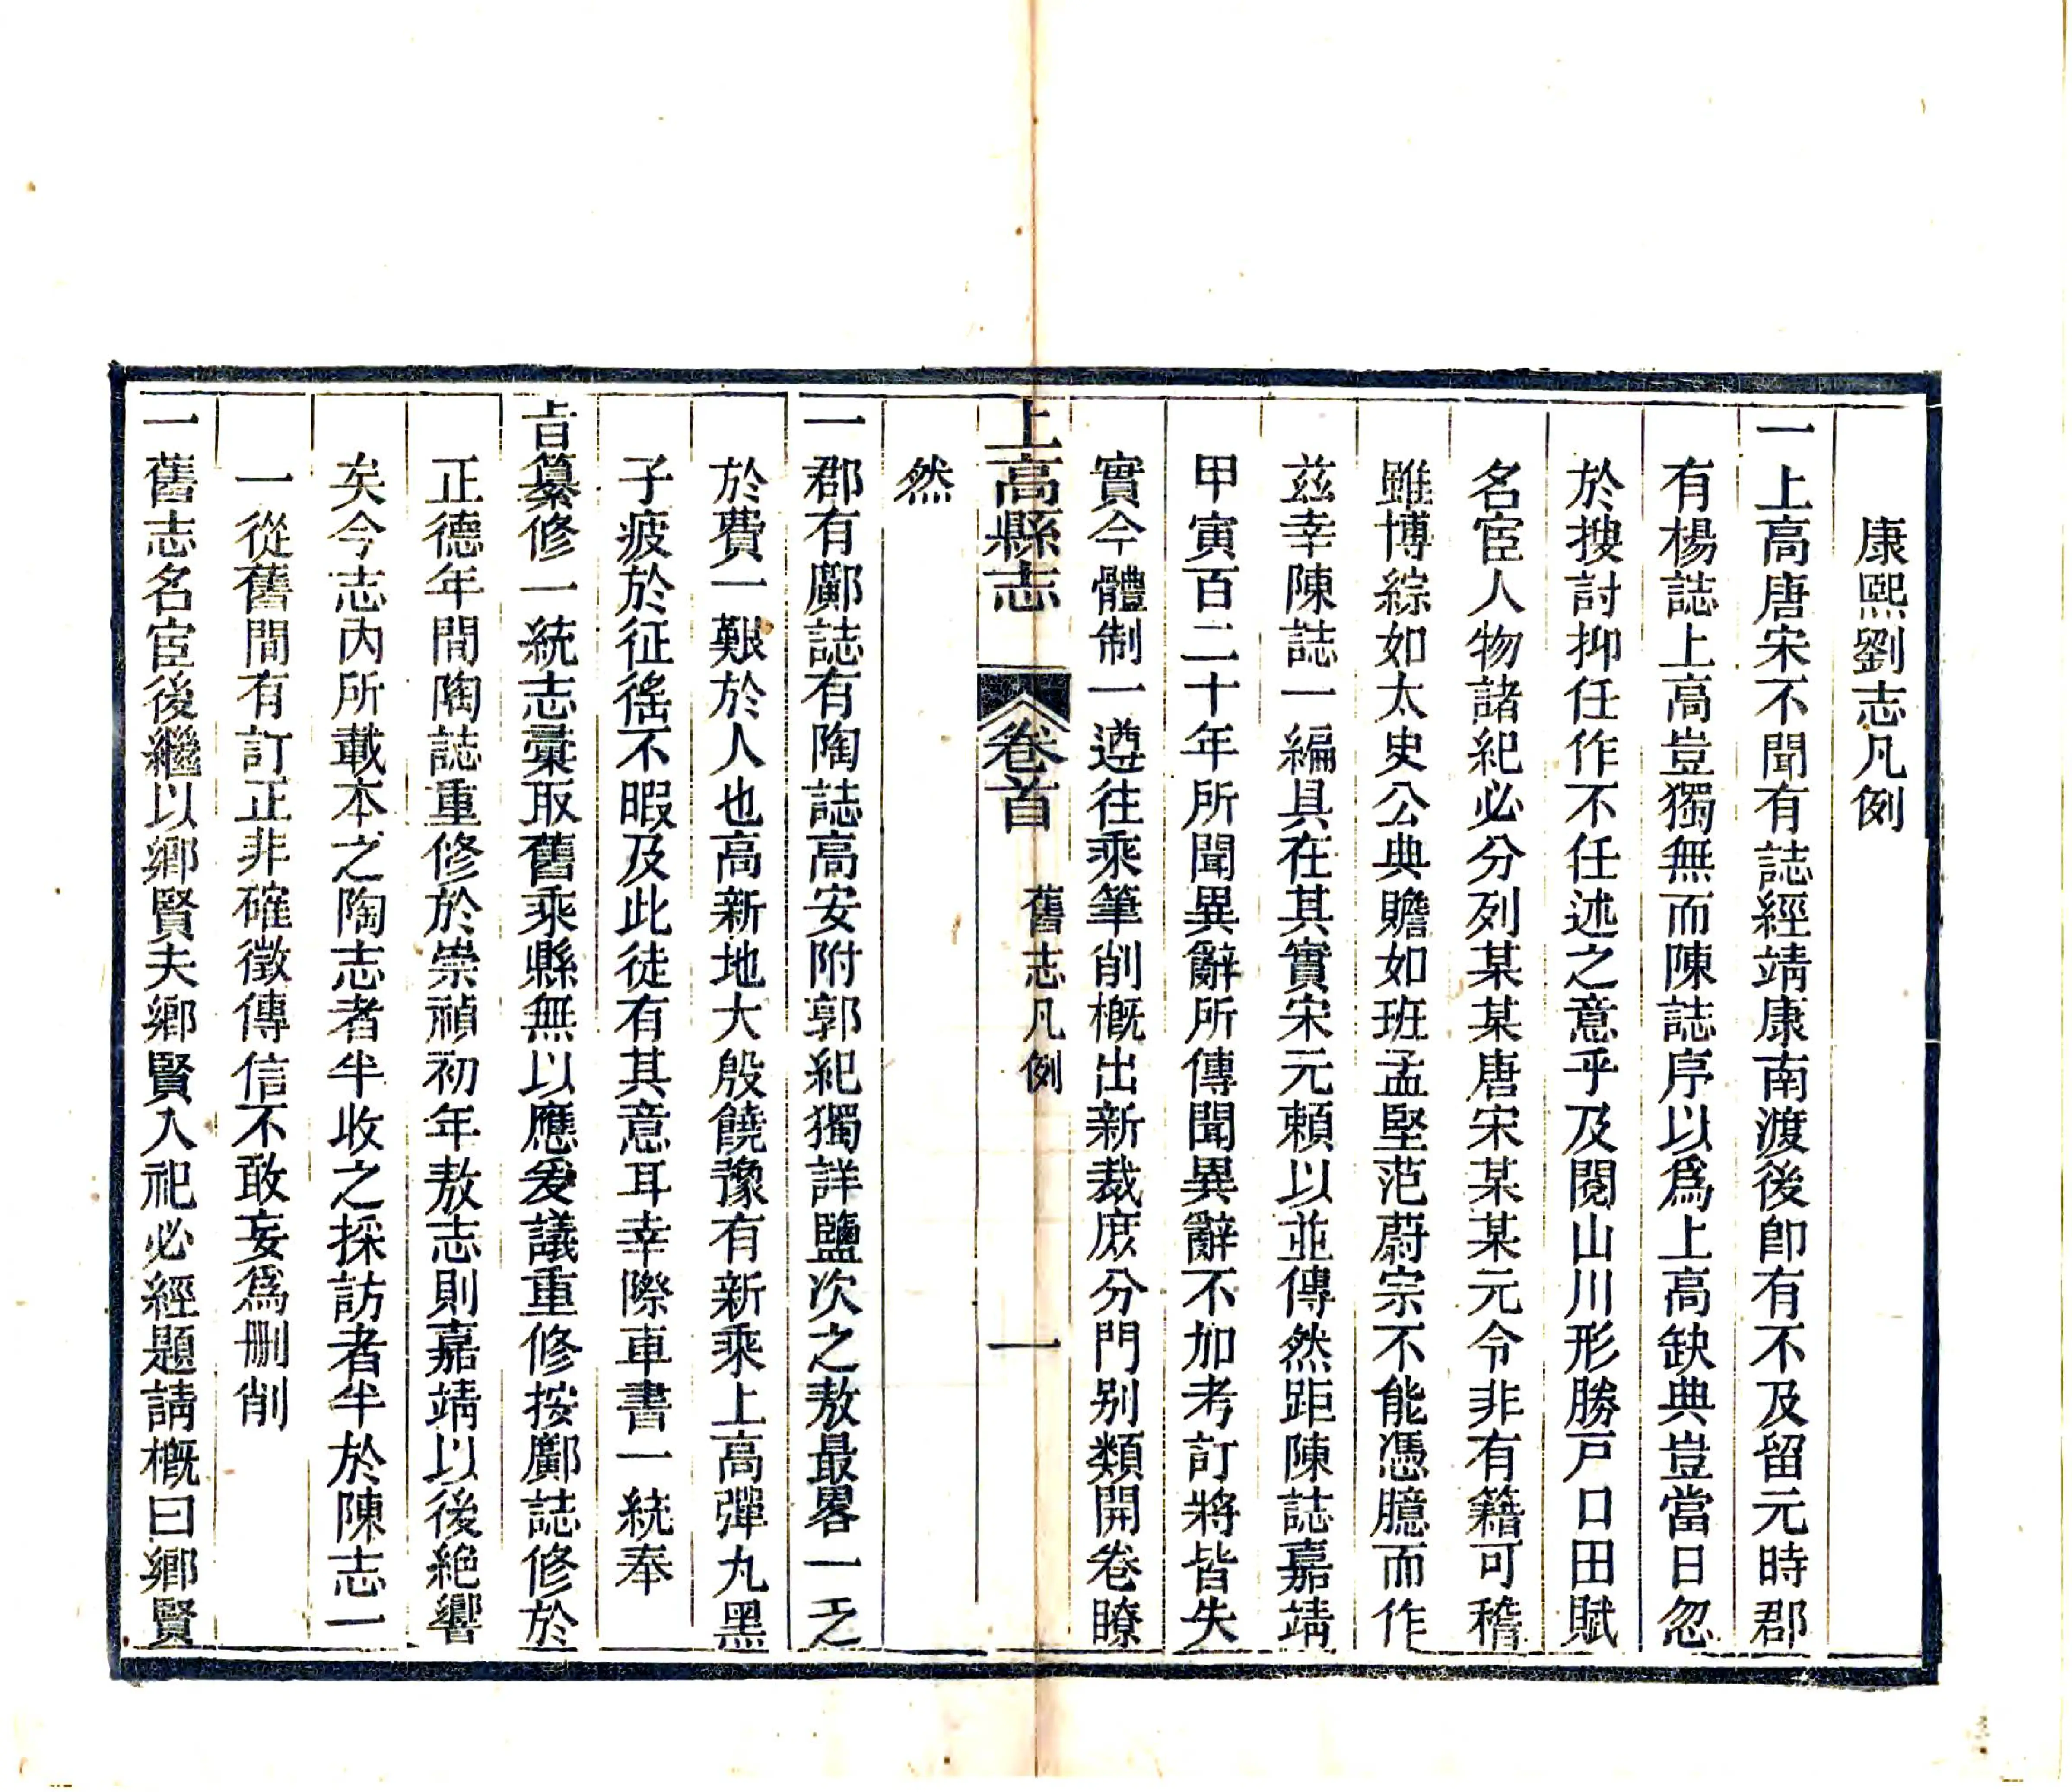 康熙劉志凡例
一上高唐宋不聞有誌經靖康南渡後卽有不及留元時郡
有楊誌上高豈獨無而陳誌序以爲上高缺典豈當日忽
於搜討抑任作不任述之意乎及閱山川形勝戸口田賦
名宦人物諸紀必分列某某唐宋某某元令非有籍可稽
雖博綜如太史公典贍如班孟堅范蔚宗不能憑臆而作
茲幸陳誌一編具在其實宋元頼以並傳然距陳誌嘉靖
甲寅百二十年所聞異辭所傳聞異辭不加考訂將皆失
實今體制一遵往乘筆削概出新裁庶分門别類開卷瞭
上高縣志 卷首 舊志凡例 一
然
一郡有鄺誌有陶誌高安附郭紀獨詳鹽次之敖最畧一乏
於費一艱於人也高新地大殷饒豫有新乘上高彈丸黑
子疲於征徭不暇及此徒有其意耳幸際車書一統奉
旨纂修一統志彙取舊乘縣無以應爰議重修按鄺誌修於
正德年間陶誌重修於崇禎初年敖志則嘉靖以後絶響
矣今志內所載本之陶志者半收之採訪者半於陳志一
一從舊間有訂正非確徵傳信不敢妄爲刪削
一舊志名宦後繼以鄉賢夫鄉賢入祀必經題請概曰鄉賢